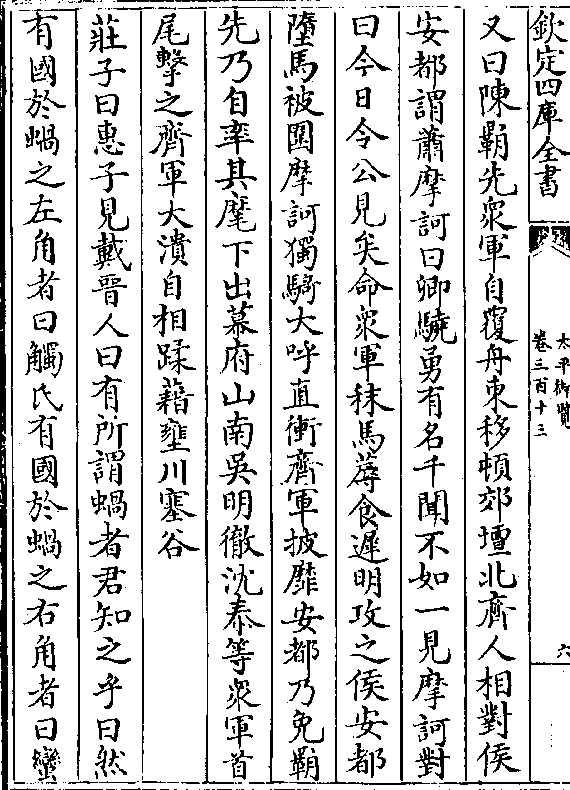 欽定四庫全書
太平御覽
卷三百十三
六
又曰陳霸先衆軍自覆舟東移頓郊壇北齊人相對侯
安都謂蕭摩訶曰卿驍勇有名千聞不如一見摩訶對
曰今日令公見矣命衆軍秣馬蓐食遲明攻之侯安都
墮馬被圍摩訶獨騎大呼直衝齊軍披靡安都乃免霸
先乃自率其麾下出幕府山南吳明徹沈泰等衆軍首
尾擊之齊軍大潰自相蹂藉壅川塞谷
莊子曰惠子見戴晉人曰有所謂蝸者君知之乎曰然
有國於蝸之左角者曰觸氏有國於蝸之右角者曰蠻